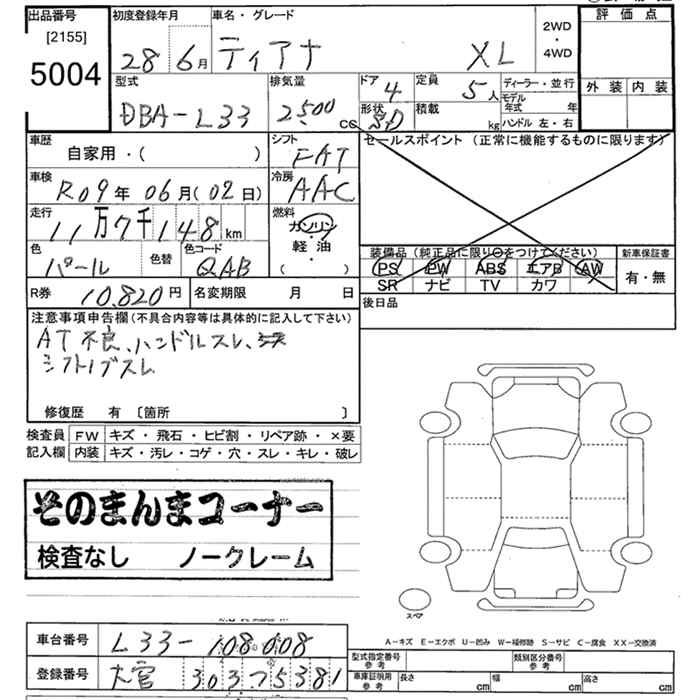 出品番号 初度登録年月 車名・グレード 評価点
[2155]
5004
28 6月 ティアナ XL 2WD・4WD
型式 排気量 ドア 定員 ディーラー・並行 外装 内装
DBA-L33 2500cc 4 5人 モデル年式 年
形状 積載 kg ハンドル 左・右
SD
車歴 シフト セールスポイント (正常に機能するものに限ります)
自家用・( ) FAT
車検 冷房
R09年 06月(02日) AAC
走行 燃料
11万7千148km ガソリン・軽油・( )
色 色替 色コード 装備品(純正品に限り○をつけてください) 新車保証書
パール QAB PS PW ABS エアB AW 有・無
SR ナビ TV カワ
R券 10,820円 名変期限 月 日 後日品
注意事項申告欄(不具合内容等は具体的に記入して下さい)
AT不良、ハンドルスレ、
シフトノブスレ
修復歴 有 〔箇所 〕
検査員 FW キズ・飛石・ヒビ割・リペア跡・×要
記入欄 内装 キズ・汚レ・コゲ・穴・スレ・キレ・破レ
そのまんまコーナー
検査なし ノークレーム
スペア
車台番号 L33-108008
A-キズ E-エクボ U-凹み W-補修跡 S-サビ C-腐食 XX-交換済
型式指定番号 参考 類別区分番号 参考
登録番号 大宮 303 75381
車庫証明用 参考 長さ cm 幅 cm 高さ cm